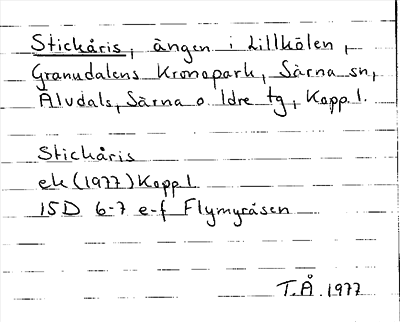 Stickåris, ängen i Lillhölen,
Granudalens Kronopark, Särna sn,
Älvdals, Särna o. Idre tg, Kopp. l.
Stickåris
ek (1977) Kopp l.
15D 6-7 e-f Flymyråsen
T.Å. 1977